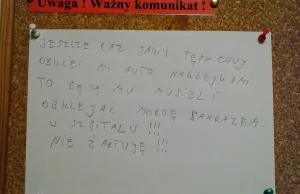 Uwaga ! Ważny komunikat !
JESZCZE RAZ JAKIŚ TĘPY CHUJ
OBKLEI MI AUTO NAKLEJKAMI
TO BĘDĄ MU MUSIELI
OBKLEJAĆ MORDĘ BANDAŻEM
W SZPITALU !!!
NIE ŻARTUJĘ !!!